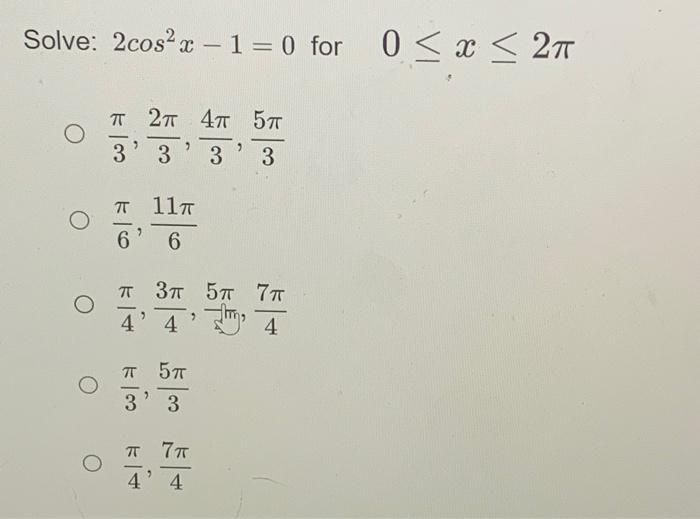 Solve: 2cos²x − 1 = 0 for 0 ≤ x ≤ 2π
π/3, 2π/3, 4π/3, 5π/3
π/6, 11π/6
π/4, 3π/4, 5π/, 7π/4
π/3, 5π/3
π/4, 7π/4